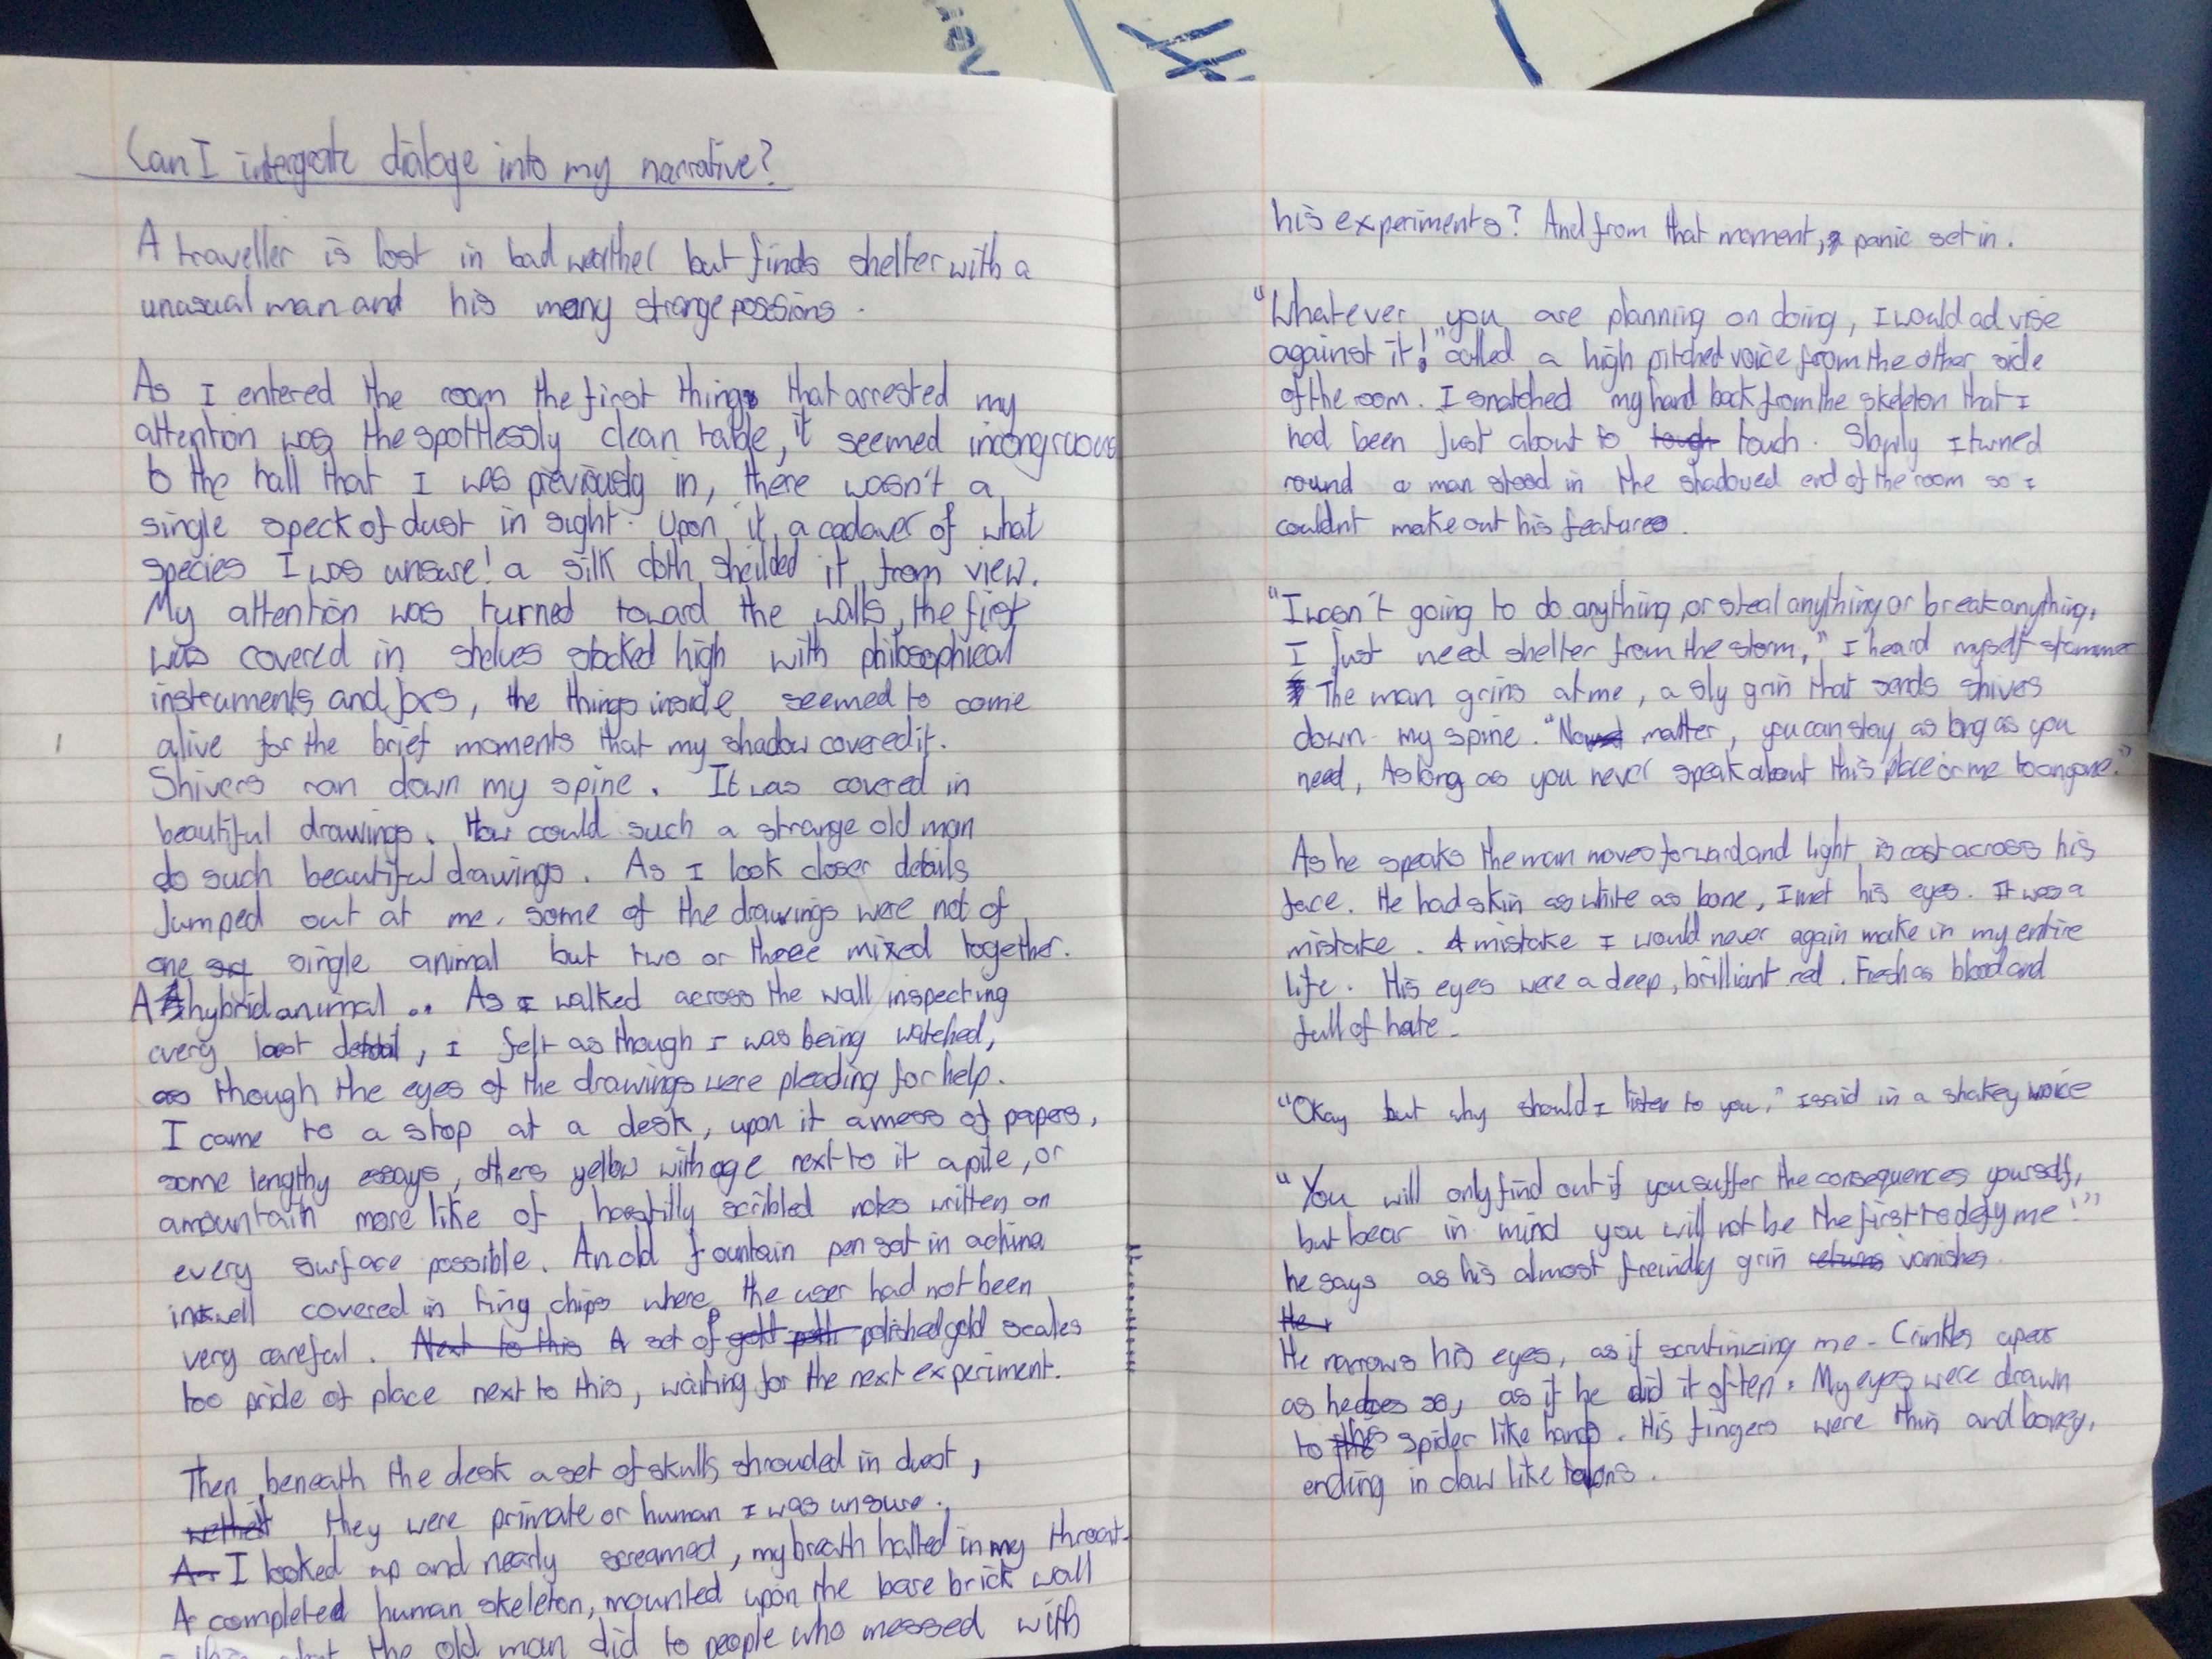 Can I intergrate dialoge into my narrative?
A traveller is lost in bad weather but finds shelter with a
unasual man and his many strange possesions.
As I entered the room the first things that arrested my
attention was the spottlessly clean table, it seemed incongruous
to the hall that I was previously in, there wasn't a
single speck of dust in sight. Upon it, a cadaver of what
species I was unsure! a silk cloth sheilded it from view.
My attention was turned toward the walls, the first
was covered in shelves stocked high with philosophical
instruments and jars, the things inside seemed to come
alive for the brief moments that my shadow covered it.
Shivers ran down my spine. It was covered in
beautiful drawings. How could such a strange old man
do such beautiful drawings. As I look closer details
Jumped out at me. some of the drawings were not of
one single animal but two or three mixed together.
A hybrid animal .. As I walked across the wall inspecting
every last detail, I felt as though I was being watched,
as though the eyes of the drawings were pleading for help.
I came to a stop at a desk, upon it a mess of papers,
some lengthy essays, others yellow with age next to it a pile, or
a mountain more like of hastilly scribled notes written on
every surface possible. An old fountain pen sat in a china
inkwell covered in tiny chips where the user had not been
very careful. Next to this A set of gold polished gold scales
too pride of place next to this, waiting for the next experiment.
Then, beneath the desk a set of skulls shrouded in dust,
they were primate or human I was unsure.
I looked up and nearly screamed, my breath halted in my throat.
A completed human skeleton, mounted upon the bare brick wall
the old man did to people who messed with
his experiments? And from that moment, panic set in.
"Whatever you are planning on doing, I would advise
against it!" called a high pitched voice from the other side
of the room. I snatched my hand back from the skeleton that I
had been just about to tough touch. Slowly I turned
round a man stood in the shadowed end of the room so I
couldnt make out his features.
"I wasn't going to do anything, or steal anything or break anything,
I just need shelter from the storm," I heard myself stammer
The man grins at me, a sly grin that sends shives
down my spine. "No matter, you can stay as long as you
need, As long as you never speak about this place or me to anyone."
As he speaks the man moves forward and light is cast across his
face. He had skin as white as bone, I met his eyes. It was a
mistake. A mistake I would never again make in my entire
life. His eyes were a deep, brilliant red. Fresh as blood and
full of hate.
"Okay but why should I listen to you," I said in a shakey voice
"You will only find out if you suffer the consequences yourself,
but bear in mind you will not be the first to defy me!"
he says as his almost freindly grin returns vanishes.
He
He narrows his eyes, as if scrutinizing me. Crinkles apear
as he does so, as if he did it often. My eyes were drawn
to his spider like hands. His fingers were thin and boney,
ending in claw like talons.